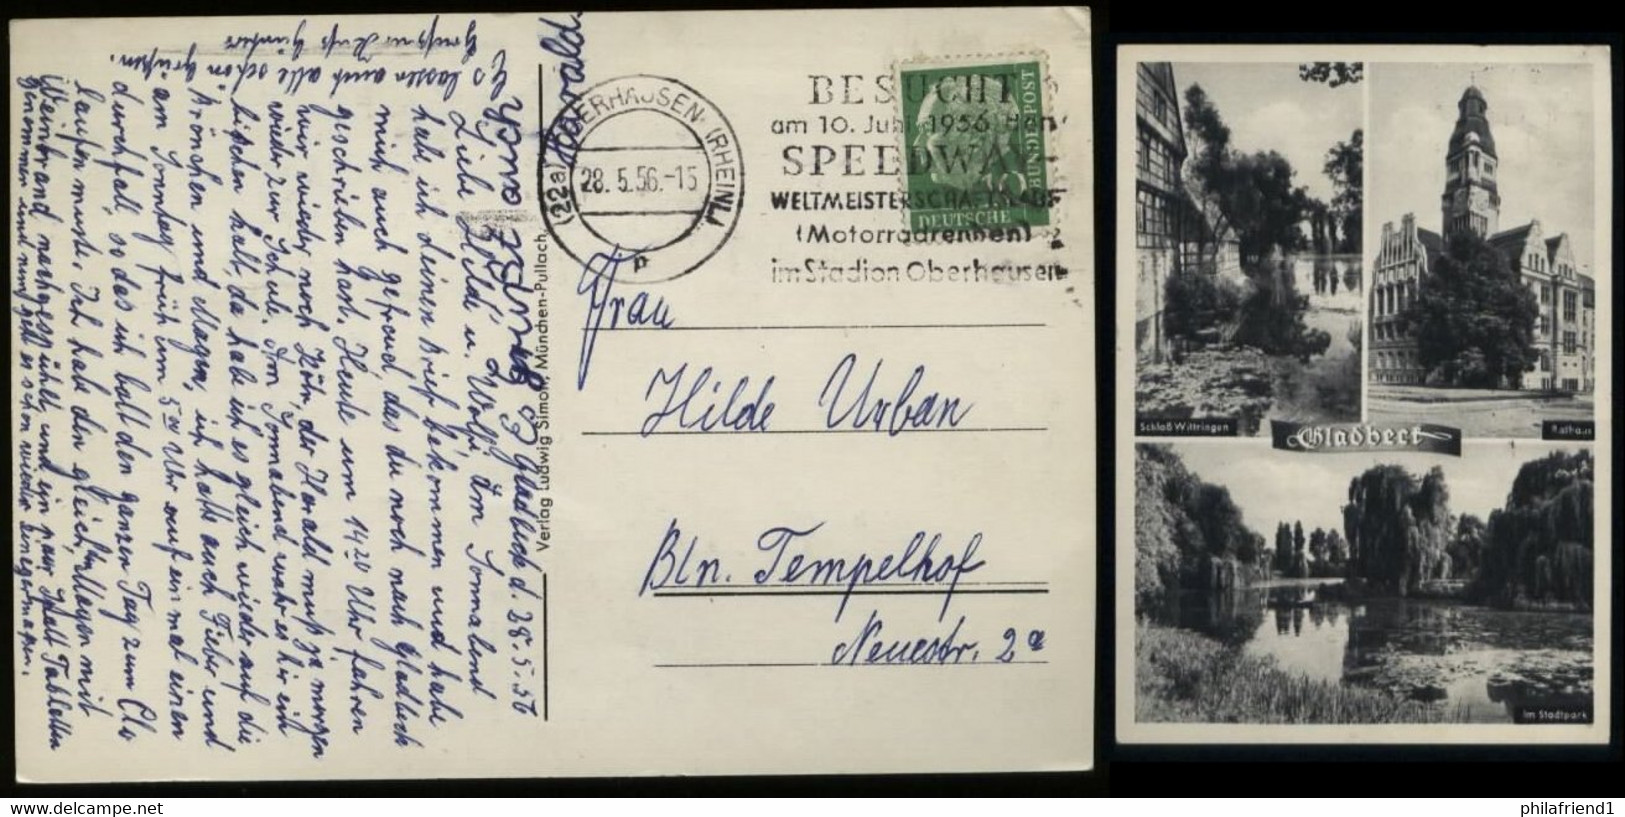 Gladbeck d. 28.5.56
Liebe Hilde u. Wolfi! Am Sonnabend
habe ich deinen Brief bekommen und habe
mich auch gefreud, das du noch nach Gladbeck
geschrieben hast. Heute um 14 20 Uhr fahren
wir wieder nach Köln, der Harald muß ja morgen
wieder zur Schule. Am Sonnabend war es hir ein
bißchen kalt, da habe ich es gleich wieder auf die
Brönchen und Magen, ich hatte auch Fieber und
am Sonntag früh um 5 00 Uhr auf einmal einen
durchfall, so das ich balt den ganzen Tag zum Clo
laufen muste. Ich hab den gleich Magen mit
Weinbrand nachgespühlt, und ein paar Tabletten
genommen und nun geht es schon wieder einegermasen.
Es lassen auch alle schön grüßen.
Gruß u. Kuß Günter
Harald
Verlag Ludwig Simon, München-Pullach
(22a) OBERHAUSEN (RHEINL)
28.5.56.-15
p
BESUCHT
am 10. Juni 1956 den
SPEEDWAY-
WELTMEISTERSCHAFTSLAUF
(Motorradrennen)
im Stadion Oberhausen
DEUTSCHE
BUNDESPOST
10
Frau
Hilde Urban
Bln. Tempelhof
Neuestr. 2a
Schloß Wittringen
Rathaus
Gladbeck
Im Stadtpark
philafriend1
www.delcampe.net